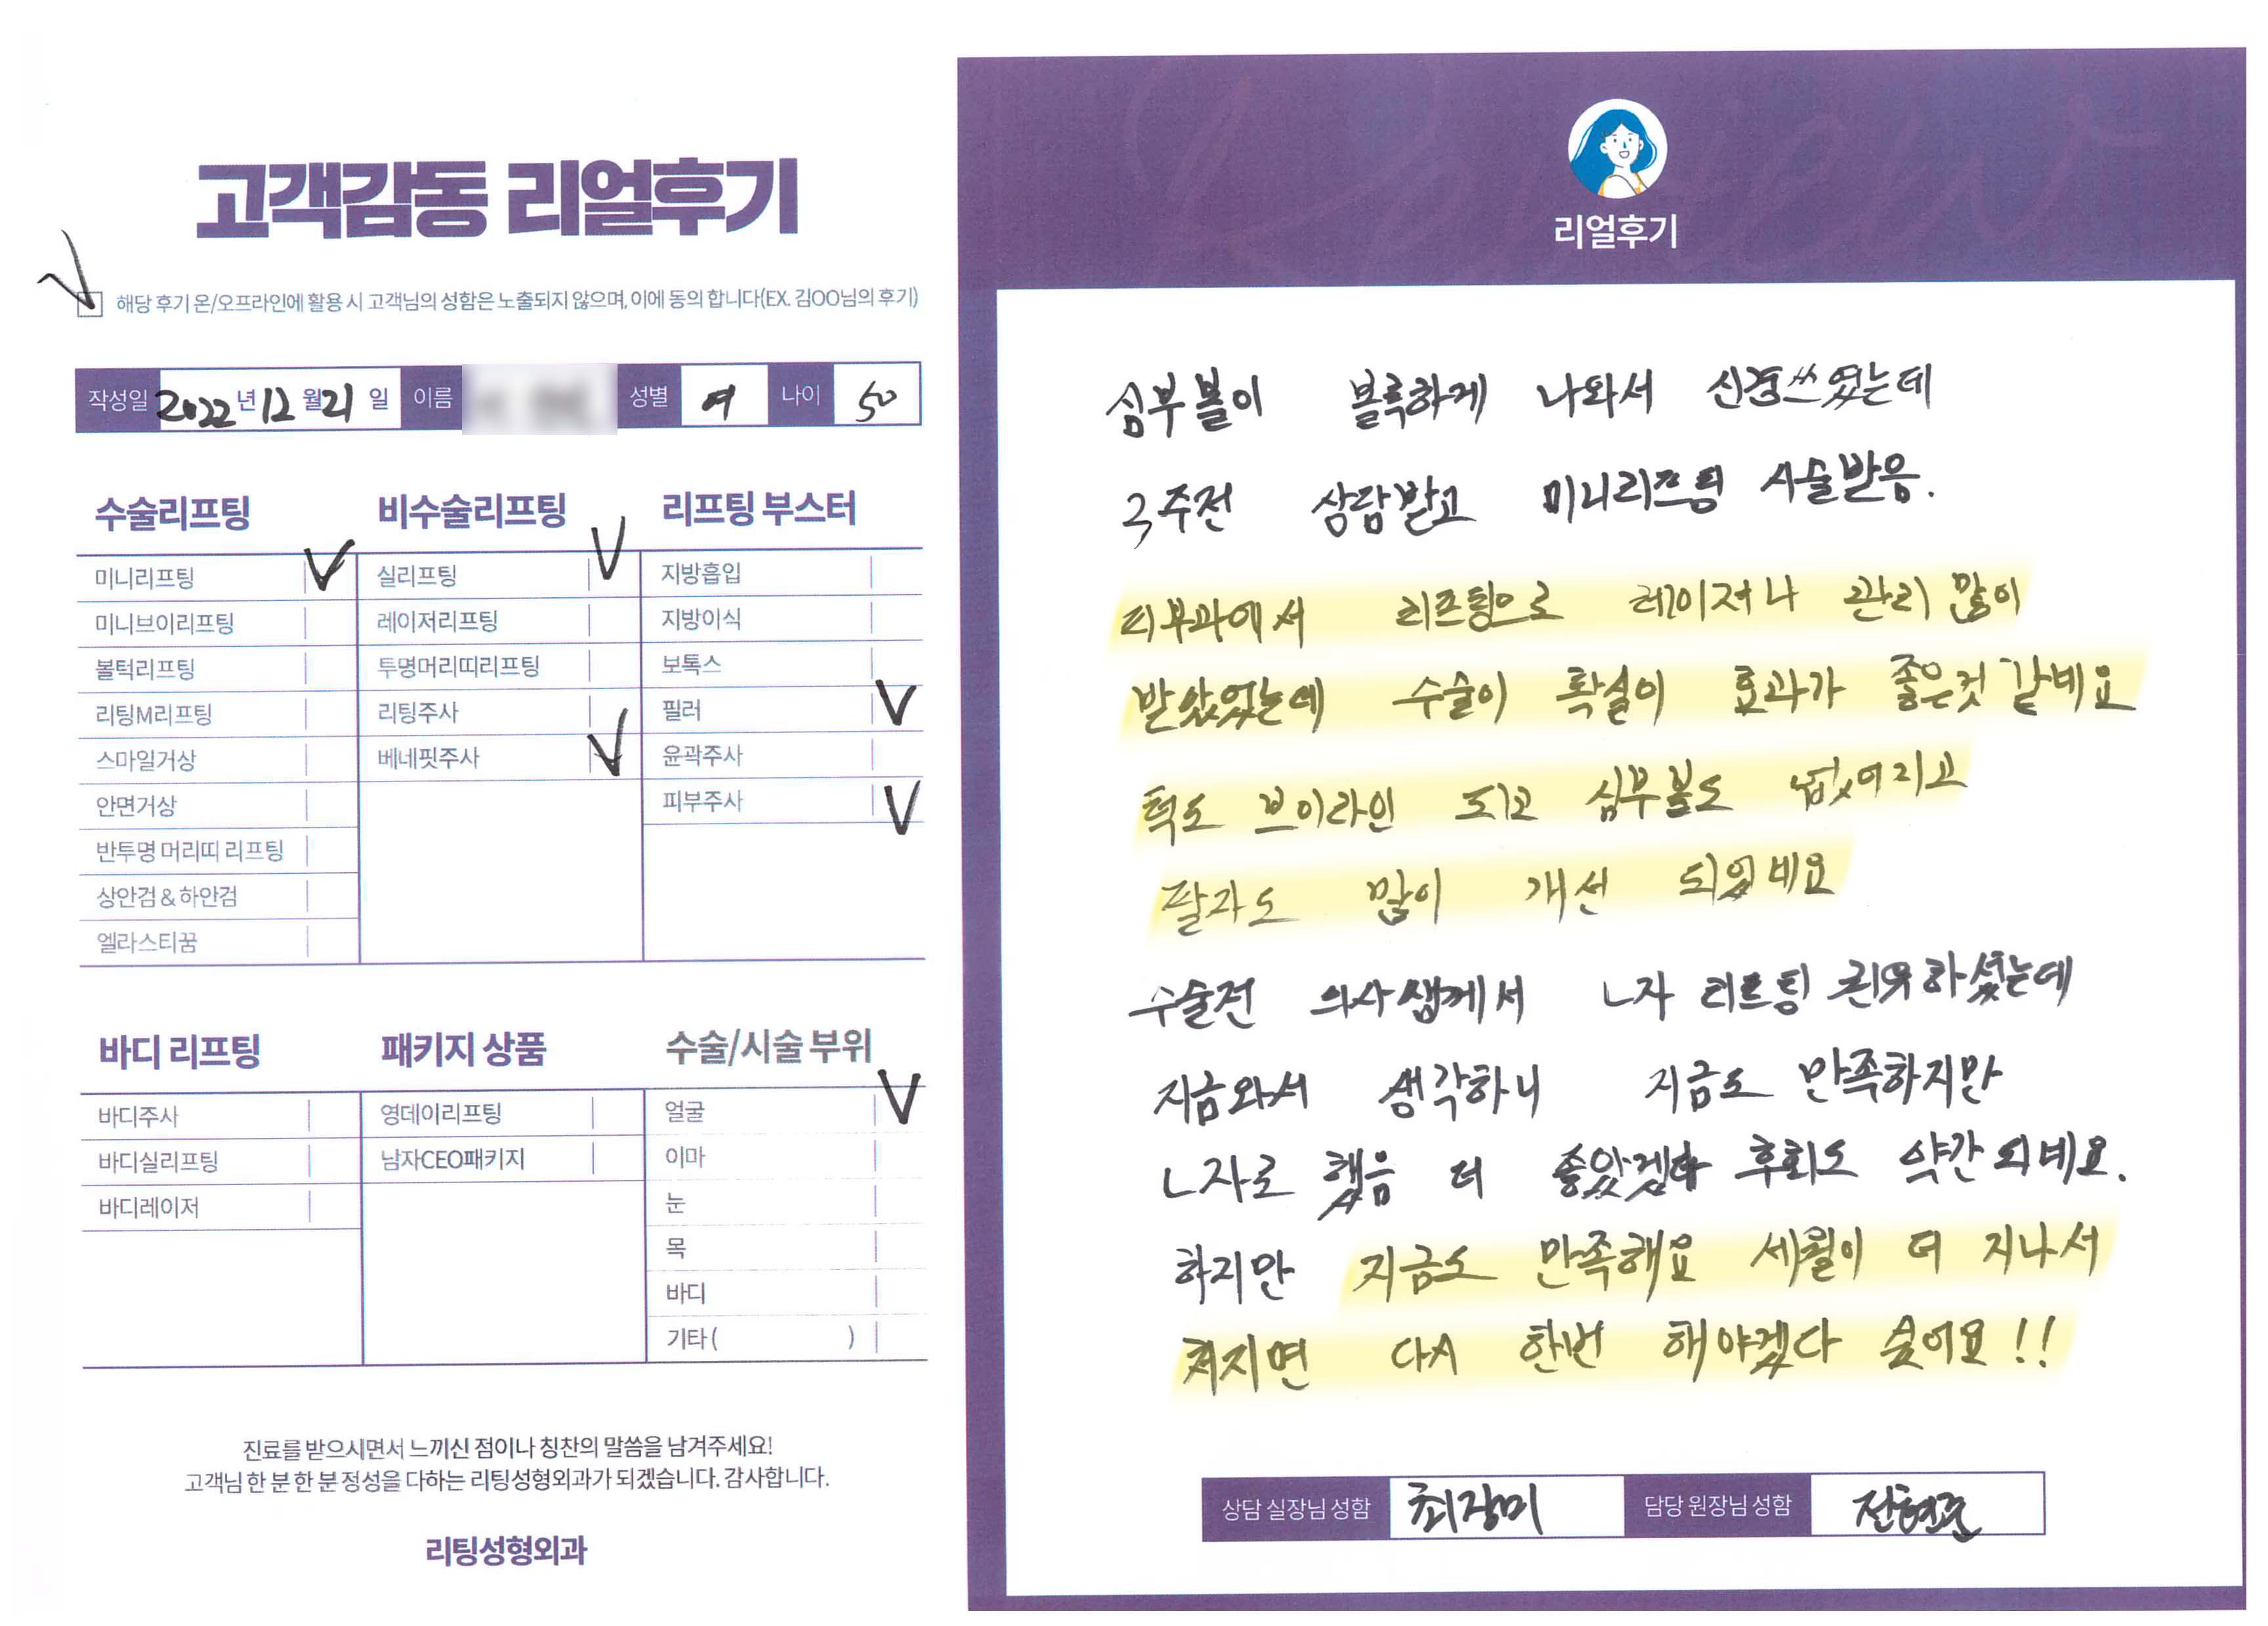 고객감동 리얼후기
해당 후기 온/오프라인에 활용 시 고객님의 성함은 노출되지 않으며, 이에 동의 합니다(EX. 김OO님의 후기)
작성일 2022 년 12 월 21 일 이름 성별 여 나이 50
수술리프팅
미니리프팅
미니브이리프팅
볼턱리프팅
리팅M리프팅
스마일거상
안면거상
반투명 머리띠 리프팅
상안검 & 하안검
엘라스티꿈
비수술리프팅
실리프팅
레이저리프팅
투명머리띠리프팅
리팅주사
베네핏주사
리프팅 부스터
지방흡입
지방이식
보톡스
필러
윤곽주사
피부주사
바디 리프팅
바디주사
바디실리프팅
바디레이저
패키지 상품
영데이리프팅
남자CEO패키지
수술/시술 부위
얼굴
이마
눈
목
바디
기타 ( )
진료를 받으시면서 느끼신 점이나 칭찬의 말씀을 남겨주세요!
고객님 한 분 한 분 정성을 다하는 리팅성형외과가 되겠습니다. 감사합니다.
리팅성형외과
리얼후기
심부볼이 볼륵하게 나와서 신경쓰였는데
3주전 상담받고 미니리프팅 시술받음.
피부과에서 리프팅으로 레이저나 관리 많이
받았었는데 수술이 확실이 효과가 좋은것 같네요
턱도 브이라인 되고 심부볼도 없어지고
팔자도 많이 개선 되었네요
수술전 의사쌤께서 ㄴ자 리프팅 권유하셨는데
지금와서 생각하니 지금도 만족하지만
ㄴ자로 했음 더 좋았겠다 후회도 약간 되네요.
하지만 지금도 만족해요 세월이 더 지나서
쳐지면 다시 한번 해야겠다 싶어요!!
상담 실장님 성함 최장미 담당 원장님 성함 전현준